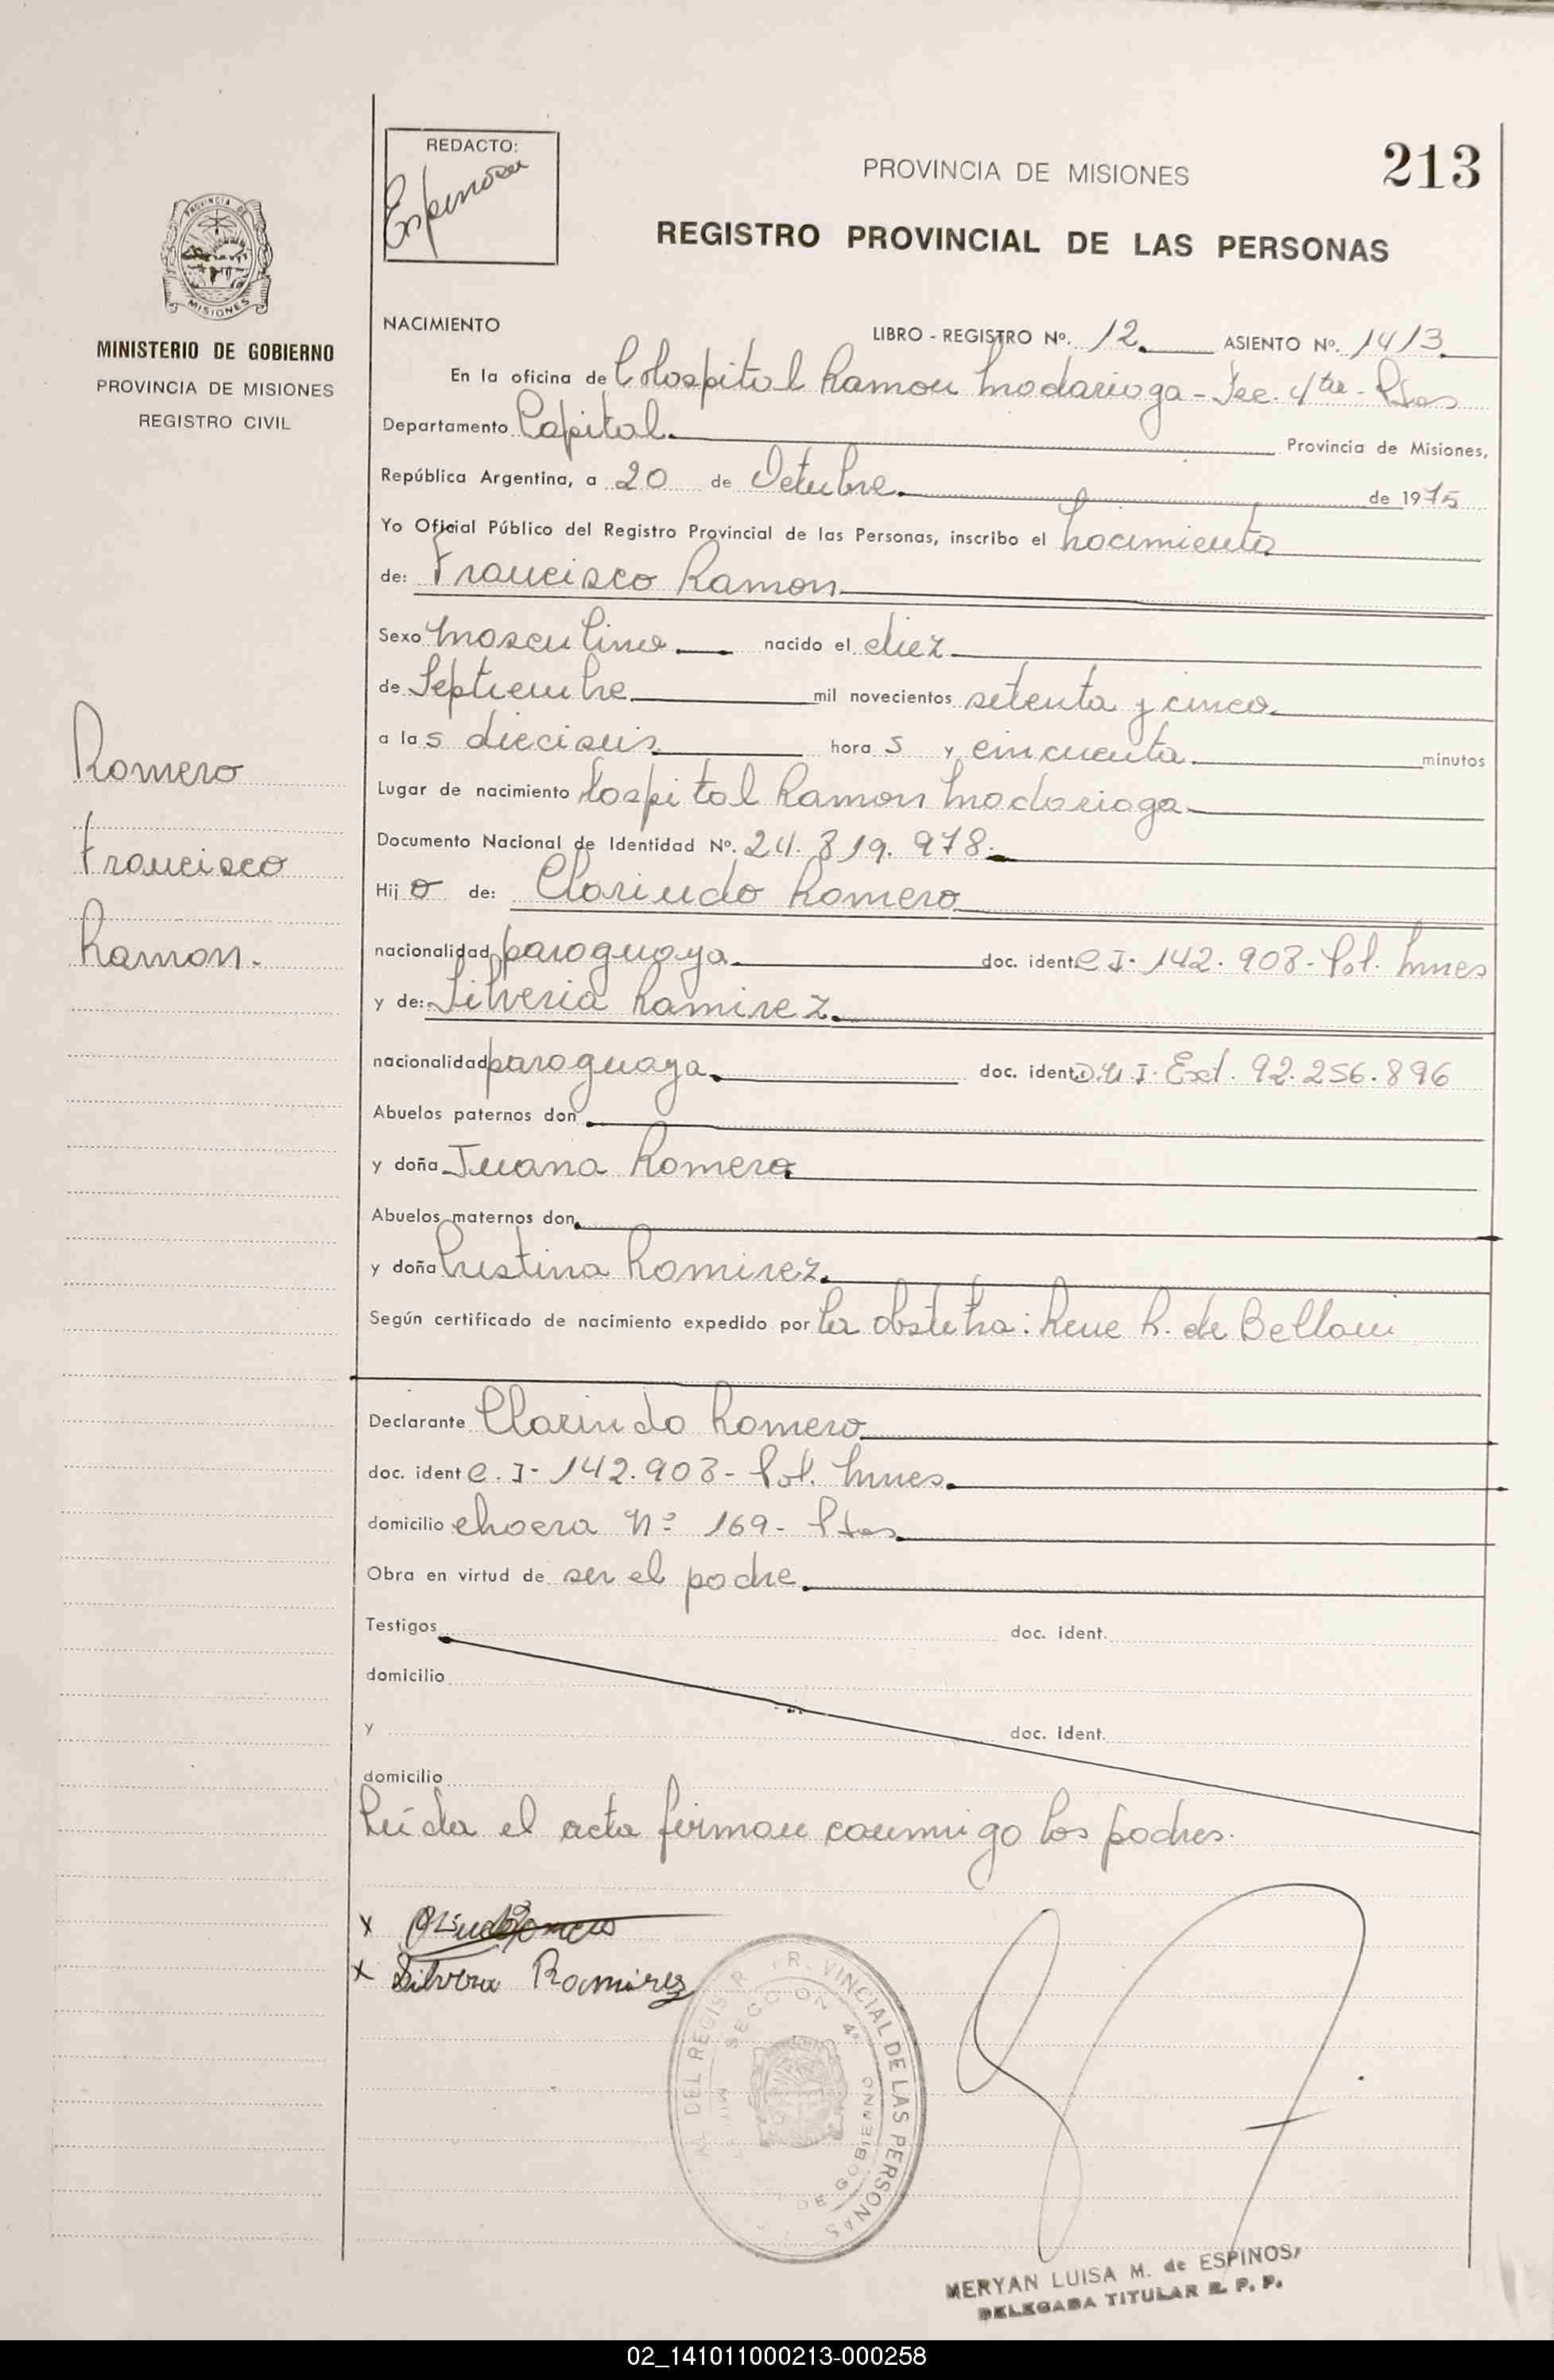 REDACTO:
Espinosa
PROVINCIA DE MISIONES
213
REGISTRO PROVINCIAL DE LAS PERSONAS
PROVINCIA DE
MISIONES
MINISTERIO DE GOBIERNO
PROVINCIA DE MISIONES
REGISTRO CIVIL
NACIMIENTO
LIBRO - REGISTRO Nº. 12. ASIENTO Nº. 1413.
En la oficina de Hospital Ramon Madariaga - Sec. 4ta - Pdas
Departamento Capital. Provincia de Misiones,
República Argentina, a 20 de Octubre. de 1975
Yo Oficial Público del Registro Provincial de las Personas, inscribo el nacimiento
de: Francisco Ramon
Sexo masculino. nacido el diez
de Septiembre mil novecientos setenta y cinco.
a las dieciseis hora s y cincuenta minutos
Lugar de nacimiento Hospital Ramon Madariaga
Documento Nacional de Identidad Nº. 24.819.978.
Hij o de: Clarindo Romero
nacionalidad paraguaya. doc. ident. C.I. 142.903 - Pol. Mnes
y de: Silveria Ramirez.
nacionalidad paraguaya. doc. ident. D.N.I. Ext. 92.256.896
Abuelos paternos don
y doña Juana Romero
Abuelos maternos don
y doña Cristina Ramirez.
Según certificado de nacimiento expedido por la obstetra: Rene R. de Belloni
Declarante Clarindo Romero
doc. ident C.I - 142.903 - Pol. Mnes.
domicilio chacra Nº 169 - Pdas
Obra en virtud de ser el padre.
Testigos doc. ident.
domicilio
y doc. ident.
domicilio
Leída el acta firman conmigo los padres.
Romero
Francisco
Ramon.
x
x Silveria Ramirez
DEL REGISTR PR VINCIAL DE LAS PERSONAS
SECCION 4º
DE GOBIERNO
MERYAN LUISA M. de ESPINOSA
DELEGADA TITULAR R. P. P.
02_141011000213-000258